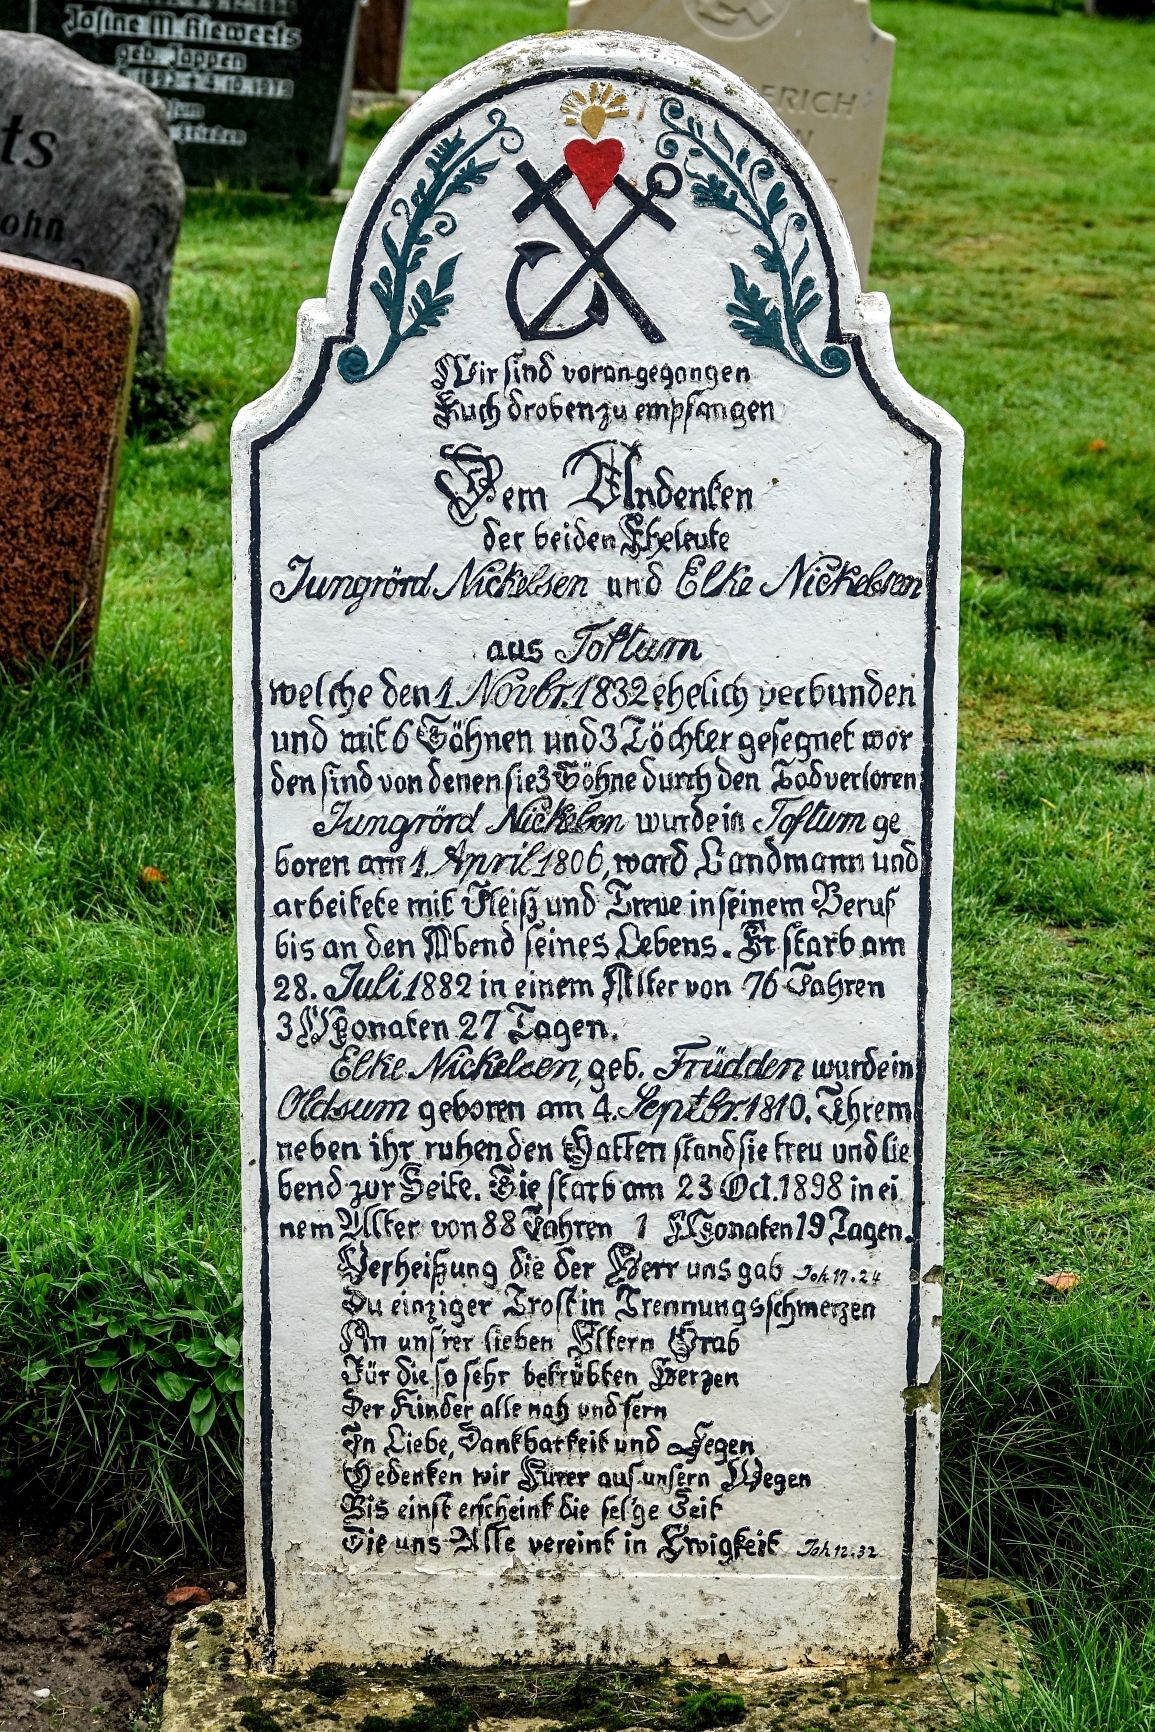 Josine M. Riewerts
geb. Jappen
ts
ohn
ERICH
Wir sind vorangegangen
Euch droben zu empfangen
Dem Andenken
der beiden Eheleute
Jungrörd Nickelsen und Elke Nickelsen
aus Toftum
welche den 1 Novbr. 1832 ehelich verbunden
und mit 6 Söhnen und 3 Töchter gesegnet wor
den sind von denen sie 3 Söhne durch den Tod verloren
Jungrörd Nickelsen wurde in Toftum ge
boren am 1. April 1806, ward Landmann und
arbeitete mit Fleiß und Treue in seinem Beruf
bis an den Abend seines Lebens. Er starb am
28. Juli 1882 in einem Alter von 76 Jahren
3 Monaten 27 Tagen.
Elke Nickelsen, geb. Früdden wurde in
Oldsum geboren am 4. Septbr. 1810. Ihrem
neben ihr ruhenden Gatten stand sie treu und lie
bend zur Seite. Sie starb am 23 Oct. 1898 in ei
nem Alter von 88 Jahren 1 Monaten 19 Tagen.
Verheißung die der Herr uns gab Joh. 17. 24
Du einziger Trost in Trennungsschmerzen
An uns'rer lieben Eltern Grab
Für die so sehr betrübten Herzen
Der Kinder alle nah und fern
In Liebe, Dankbarkeit und Segen
Gedenken wir Eurer auf unsern Wegen
Bis einst erscheint die sel'ge Zeit
Die uns Alle vereint in Ewigkeit Joh. 12. 32